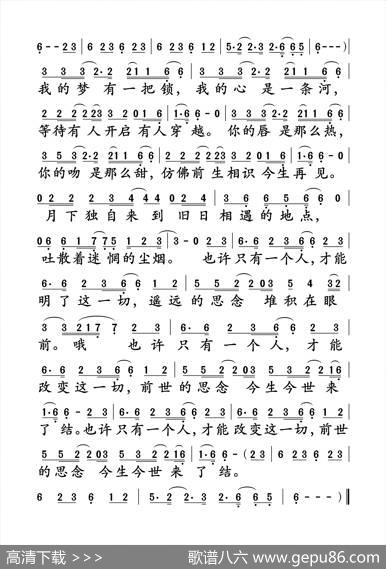 6--23|6 236 236|6 236 12|5·2 2·3 2·665|6---)|
3 3 3 2·2 211 66|3 3 3 2·2 211 66|
我的梦 有一把锁，我的心 是一条河，
2 2 2 223 3 2 01 6|1·66-0|3 3 3 2·2 211 6|
等待有人开启有人穿越。你的唇是那么热，
3 5 3 2·2 211 66|2 2 5 223 3 2 01 6|1·66-0|
你的吻是那么甜，仿佛前生相识今生再见。
02 2 2 34 4 4 02 4|3 6 5 6 6 6 0|
月下独自来到旧日相遇的地点，
06 6 1 775 1 2 3|3-0 2 3|6·6 2 3 6 6 2 3|
吐散着迷惘的尘烟。 也许只有一个人，才能
6·6 2 3 6 6 1 2|5 5 2 2 03|0 5 4 3 2|
明了这一切，遥远的思念 堆积在眼
3 3 2 1 7 7 2 3|6·6 2 3 6 6 2 3|
前。哦 也许只有一个人，才能
6·6 2 3 6 6 1 2|5 5 2 2 03|5 3 2 2 1 6|
改变这一切，前世的思念 今生今世来
1·66-2 3|6·6 2 3 6 6 2 3|6·6 2 3 6 6 1 2|
了结。也许只有一个人，才能改变这一切，前世
5 5 2 2 03|5 3 2 2 1 6|1·66-(2 3|6 236 236|
的思念 今生今世来了结。
6 236 12|5·2 2·3 2·665|6---)‖
高清下载 >>>
歌谱八六 www.gepu86.com